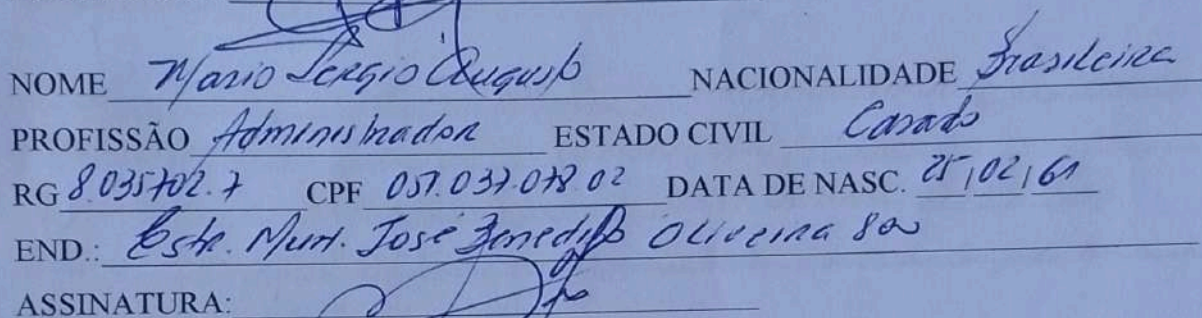 NOME Mario Sergio Augusto NACIONALIDADE Brasileira
PROFISSÃO Administrador ESTADO CIVIL Casado
RG 8.035702.7 CPF 057.037.078.02 DATA DE NASC. 25/02/61
END.: Estr. Mun. José Benedito Oliveira 800
ASSINATURA: